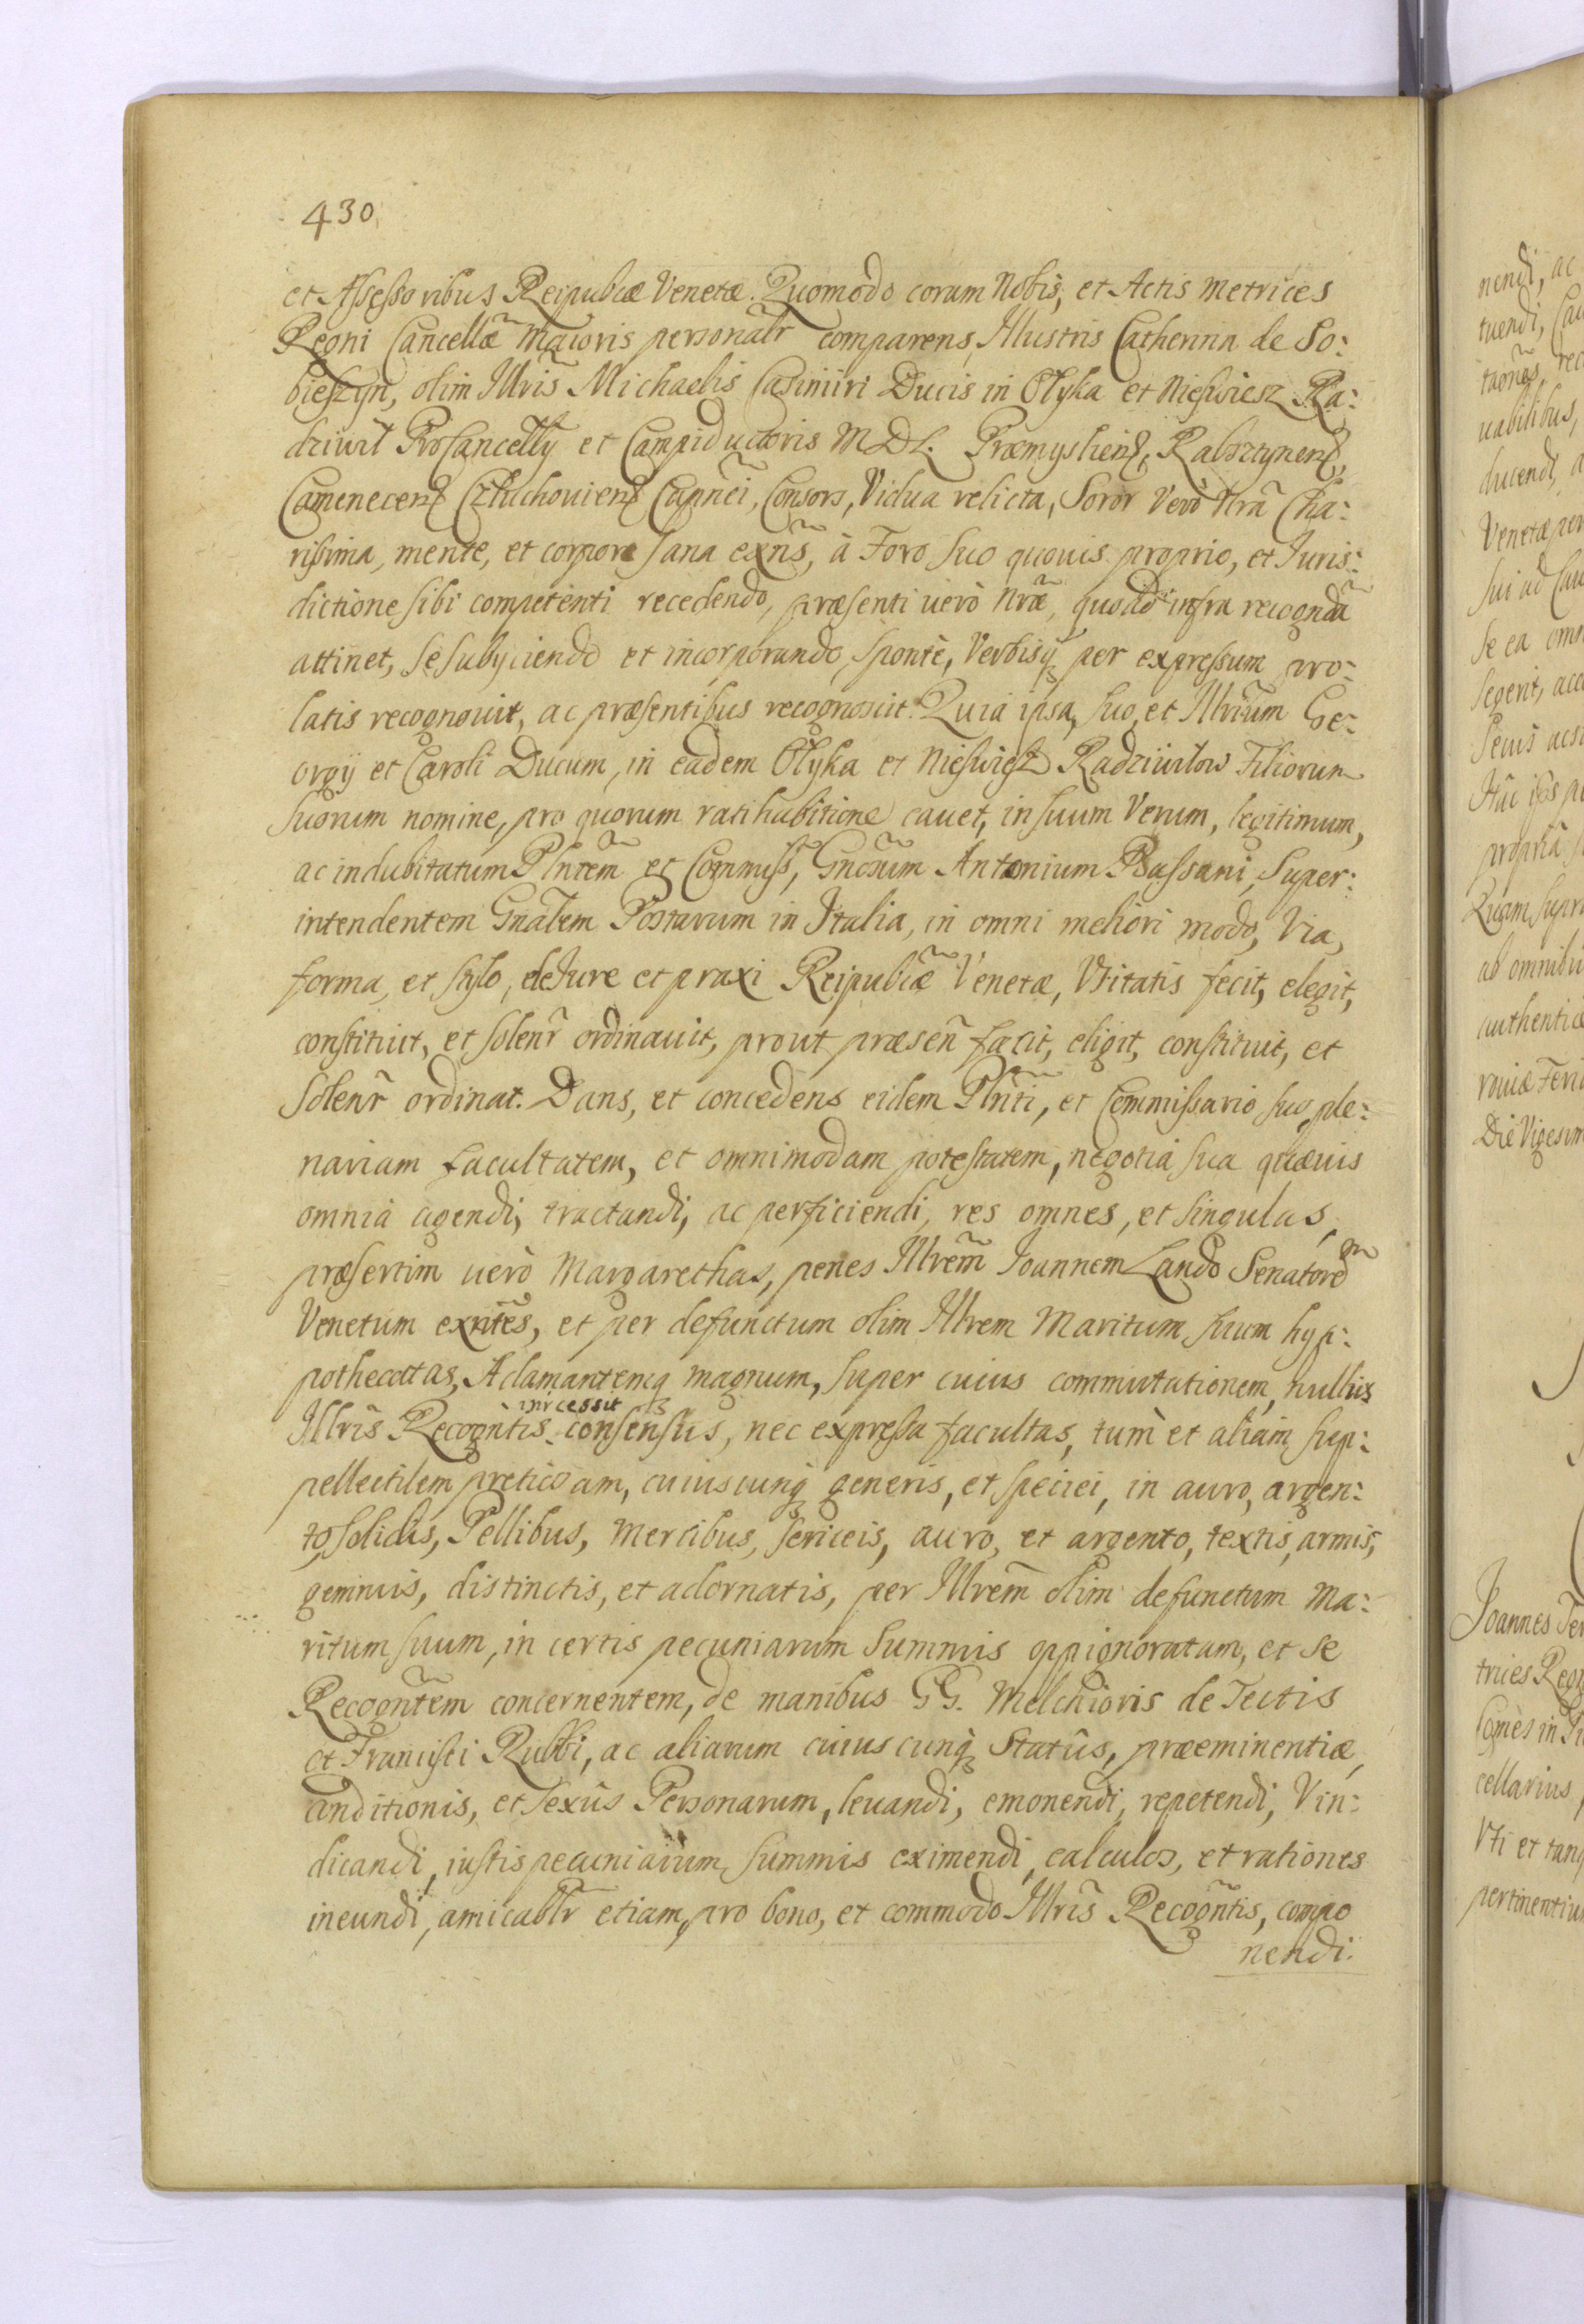 430
et Assessoribus Reipubcæ Venetæ. Quomodo coram Nobis, et Actis Metrices
Regni Cancellæ Maioris personalr comparens Illustris Catherina de So:
bieszyn, olim Illris Michaelis Casimiri Ducis in Olyka et Nieswiesz Ra:
dziwil ProCancellÿ et Campiductoris M D L. Præmysliens, Rabsztynens,
Camenecens Człuchouiens Capnei, Consors, Vidua relicta, Soror Verò Nra Cha:
rissima, mente, et corpore sana exns, à Foro suo quouis proprio, et Iuris:
dictione sibi competenti recedendo, præsenti uerò Nræ, quoad infra recognda
attinet, se subyciendo et incorporando, sponte, Verbisq per expressum pro:
latis recognouit, ac præsentibus recognoscit. Quia ipsa, suo, et Illrium Ge:
orgÿ et Caroli Ducum, in eadem Olyka et Nieswiesz Radziwiłow Filiorum
suorum nomine, pro quorum ratihabitione cauet, in suum Verum, legitimum,
ac indubitatum Plntem et Commiss, Gnosum Antonium Bassani, Super:
intendentem Gnalem Postarum in Italia, in omni meliori modo, Via,
forma, et stylo, de Iure et praxi Reipubcæ Venetæ, Vsitatis fecit, elegit,
constituit, et solenr ordinauit, prout præsen facit, eligit, constituit, et
solenr ordinat. Dans, et concedens eidem Plnti, et Commissario suo, ple:
nariam facultatem, et omnimodam potestatem, negotia sua quæuis
omnia agendi, tractandi, ac perficiendi, res omnes, et singulas,
præsertim uerò Margarethas, penes Illrem Ioannem Lando Senatorem
Venetum exntes, et per defunctum olim Illrem Maritum suum hyp:
pothecatas, Adamantemq magnum, super cuius commutationem, nullus
Illris Recogntis incessit consensus, nec expressa facultas, tum et aliam sup:
pellectilem pretiosam, cuiuscunq generis, et speciei, in auro, argen:
to, solidis, Pellibus, Mercibus, sericeis, auro, et argento, textis, armis,
gemmis, distinctis, et adornatis, per Illrem olim defunctum Ma:
ritum suum, in certis pecuniarum Summis oppignoratam, et se
Recogntem concernentem, de manibus GG. Melchioris de Tectis
et Francisci Rubbi, ac aliarum cuiuscunq Statûs, præeminentiæ,
conditionis, et Sexûs Personarum, leuandi, emonendi, repetendi, Vin:
dicandi, iustis pecuniarum summis eximendi, calculos, et rationes
ineundi, amicablr etiam, pro bono, et commodo Illris Recogntis, compo
nendi.